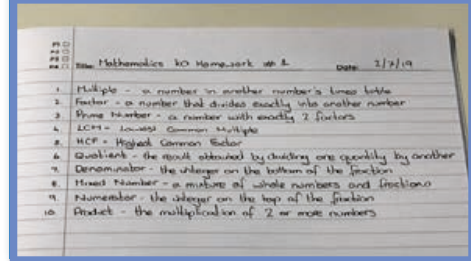 Title: Mathematics KO Homework # 1 Date: 2/7/19
1. Multiple - a number in another number's times table
2. Factor - a number that divides exactly into another number
3. Prime Number - a number with exactly 2 factors
4. LCM - Lowest Common Multiple
5. HCF - Highest Common Factor
6. Quotient - the result obtained by dividing one quantity by another
7. Denominator - the integer on the bottom of the fraction
8. Mixed Number - a mixture of whole numbers and fractions
9. Numerator - the integer on the top of the fraction
10. Product - the multiplication of 2 or more numbers